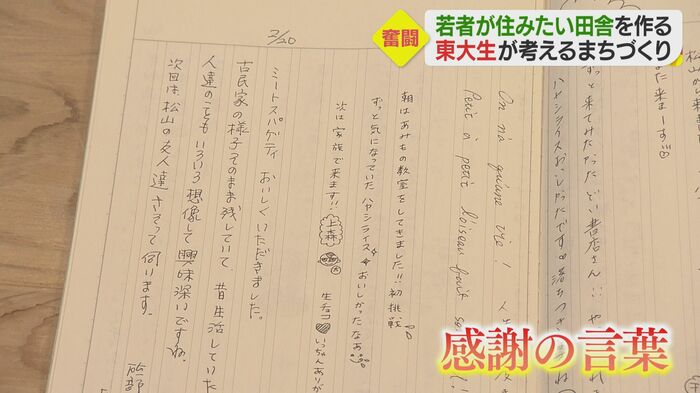 奮闘
若者が住みたい田舎を作る
東大生が考えるまちづくり
また来まーす
ずっと来てみたかった
ハヤシライスおいしかったです。
On n'a qu'une vie!
Petit à petit l'oiseau fait
朝はあみもの教室をしてきました!!初挑戦
ずっと気になっていたハヤシライスおいしかったなぁ
次は家族で来ます!!
上森
生チョコ
2/20
ミートスパゲティ おいしくいただきました。
古民家の様子そのまま残していて、昔生活していた
人達のこともいろいろ想像して興味深いですね。
次回は松山の友人達さそって伺います。
感謝の言葉